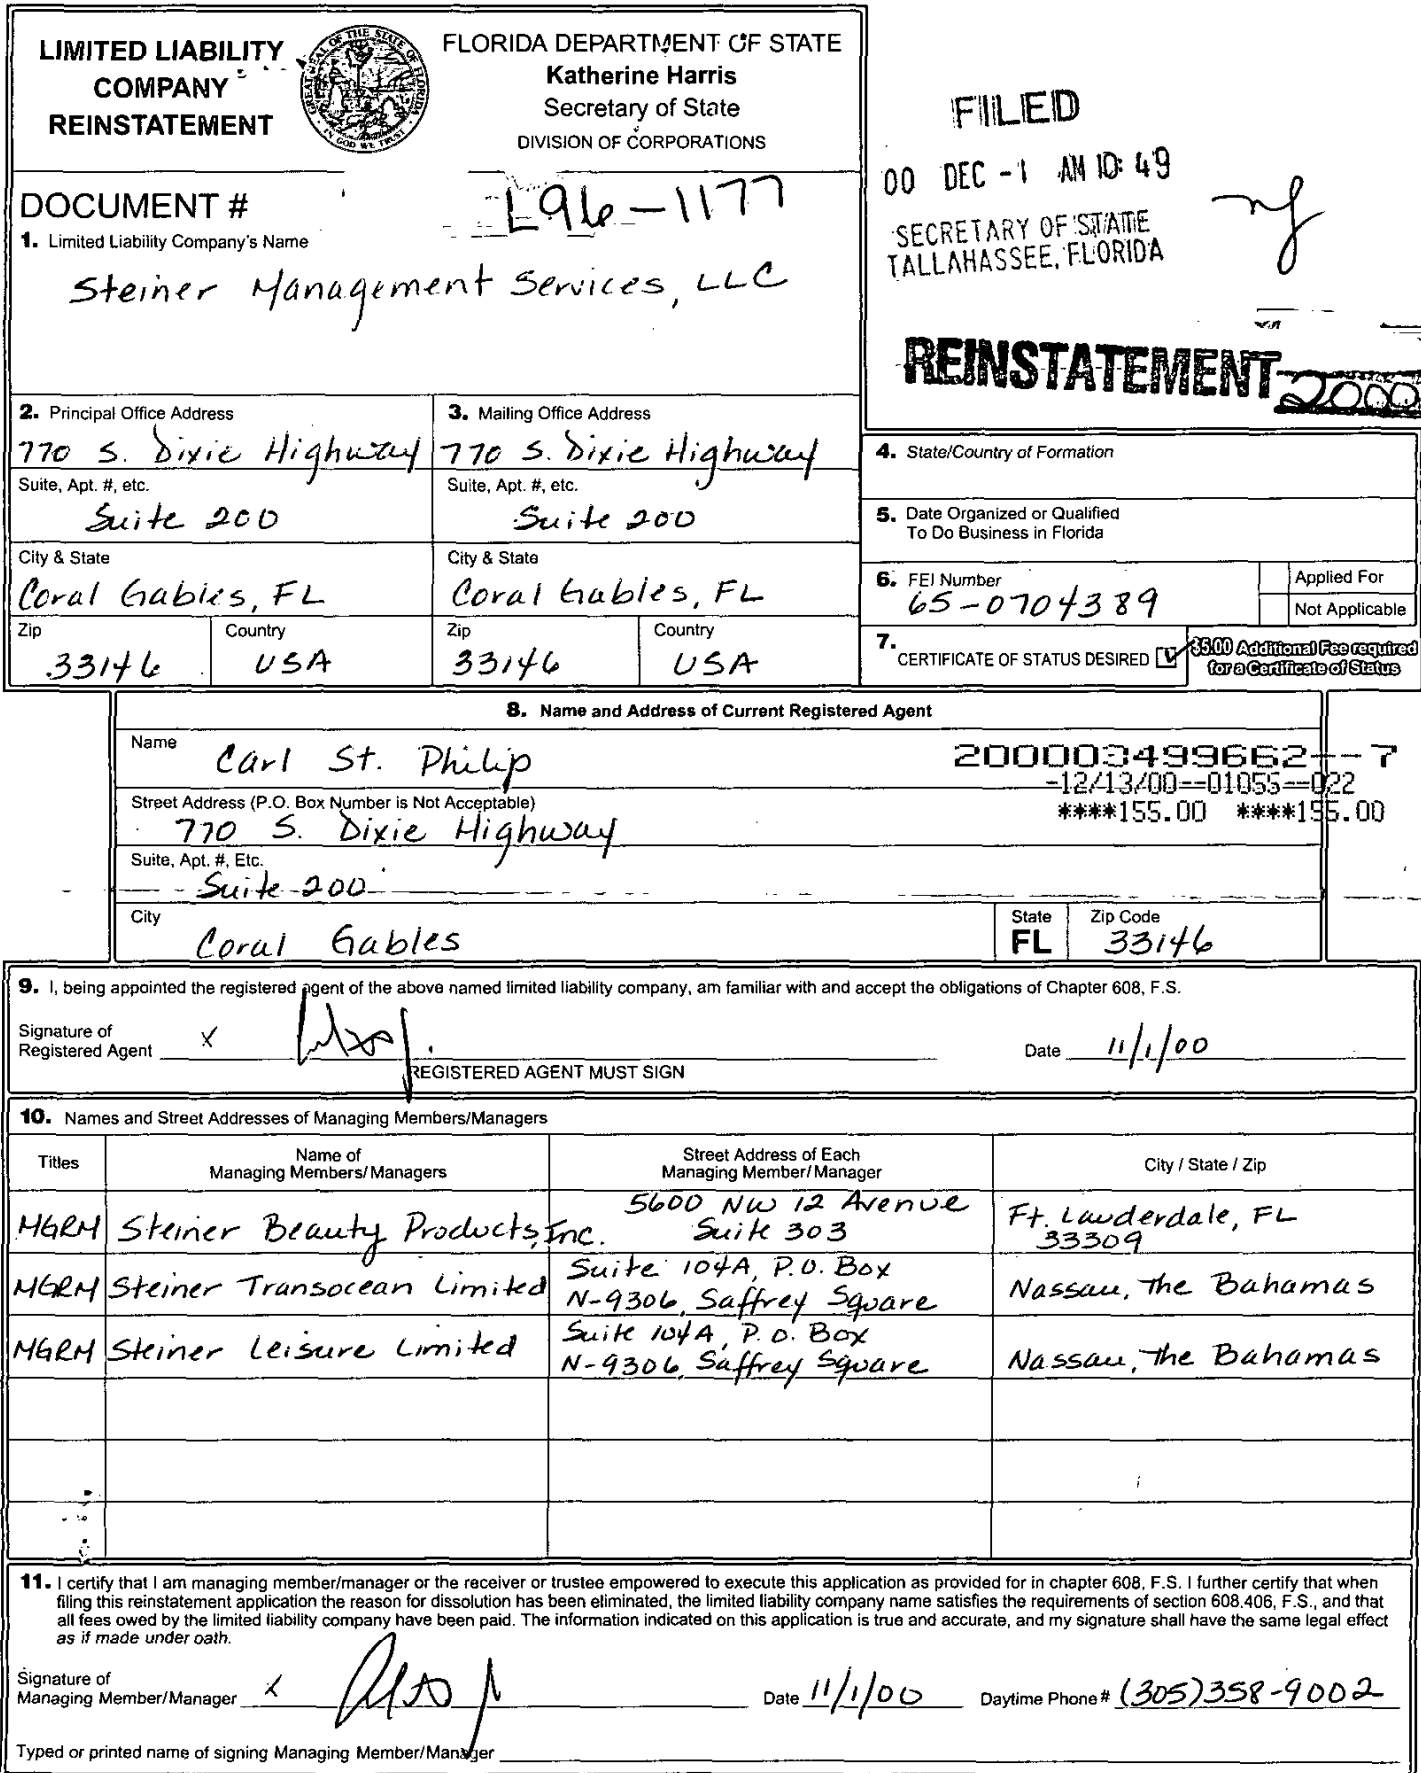 LIMITED LIABILITY
COMPANY
REINSTATEMENT
GREAT SEAL OF THE STATE OF FLORIDA
IN GOD WE TRUST
FLORIDA DEPARTMENT OF STATE
Katherine Harris
Secretary of State
DIVISION OF CORPORATIONS
FILED
00 DEC -1 AM 10:49
SECRETARY OF STATE
TALLAHASSEE, FLORIDA
REINSTATEMENT 2000
DOCUMENT # L96-1177
1. Limited Liability Company's Name
Steiner Management Services, LLC
2. Principal Office Address
770 S. Dixie Highway
Suite, Apt. #, etc.
Suite 200
City & State
Coral Gables, FL
Zip Country
33146 USA
3. Mailing Office Address
770 S. Dixie Highway
Suite, Apt. #, etc.
Suite 200
City & State
Coral Gables, FL
Zip Country
33146 USA
4. State/Country of Formation
5. Date Organized or Qualified
To Do Business in Florida
6. FEI Number
65-0704389
Applied For
Not Applicable
7. CERTIFICATE OF STATUS DESIRED
$5.00 Additional Fee required
for a Certificate of Status
8. Name and Address of Current Registered Agent
Name
Carl St. Philip
200003499662--7
-12/13/00--01055--022
****155.00 ****155.00
Street Address (P.O. Box Number is Not Acceptable)
770 S. Dixie Highway
Suite, Apt. #, Etc.
Suite 200
City
Coral Gables
State
FL
Zip Code
33146
9. I, being appointed the registered agent of the above named limited liability company, am familiar with and accept the obligations of Chapter 608, F.S.
Signature of
Registered Agent X
Date 11/1/00
REGISTERED AGENT MUST SIGN
10. Names and Street Addresses of Managing Members/Managers
Titles
Name of
Managing Members/Managers
Street Address of Each
Managing Member/Manager
City / State / Zip
MGRM Steiner Beauty Products, Inc.
5600 NW 12 Avenue
Suite 303
Ft. Lauderdale, FL
33309
MGRM Steiner Transocean Limited
Suite 104A, P.O. Box
N-9306, Saffrey Square
Nassau, The Bahamas
MGRM Steiner Leisure Limited
Suite 104A, P.O. Box
N-9306, Saffrey Square
Nassau, The Bahamas
11. I certify that I am managing member/manager or the receiver or trustee empowered to execute this application as provided for in chapter 608, F.S. I further certify that when
filing this reinstatement application the reason for dissolution has been eliminated, the limited liability company name satisfies the requirements of section 608.406, F.S., and that
all fees owed by the limited liability company have been paid. The information indicated on this application is true and accurate, and my signature shall have the same legal effect
as if made under oath.
Signature of
Managing Member/Manager X
Date 11/1/00 Daytime Phone # (305)358-9002
Typed or printed name of signing Managing Member/Manager